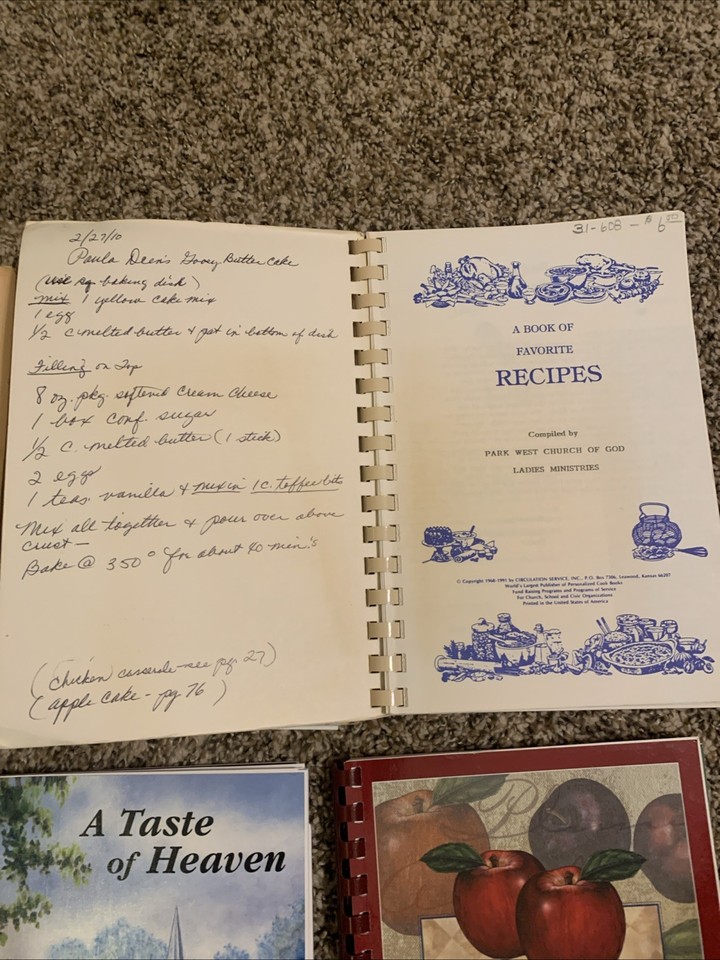 2/27/10
Paula Deen's Gooey Butter Cake
(use sq. baking dish)
mix 1 yellow cake mix
1 egg
1/2 c melted butter & pat in bottom of dish
Filling on Top
8 oz. pkg. softened Cream Cheese
1 box conf. sugar
1/2 c. melted butter (1 stick)
2 eggs
1 teas. vanilla & mix in 1 c. toffee bits
Mix all together & pour over above
crust —
Bake @ 350° for about 40 min's
(Chicken casserole - see pg. 27)
(apple cake - pg 76)
31-608 - $6.00
A BOOK OF
FAVORITE
RECIPES
Compiled by
PARK WEST CHURCH OF GOD
LADIES MINISTRIES
© Copyright 1968-1991 by CIRCULATION SERVICE, INC., P.O. Box 7306, Leawood, Kansas 66207
World's Largest Publisher of Personalized Cook Books
Fund Raising Programs and Programs of Service
For Church, School and Civic Organizations
Printed in the United States of America
A Taste
of Heaven